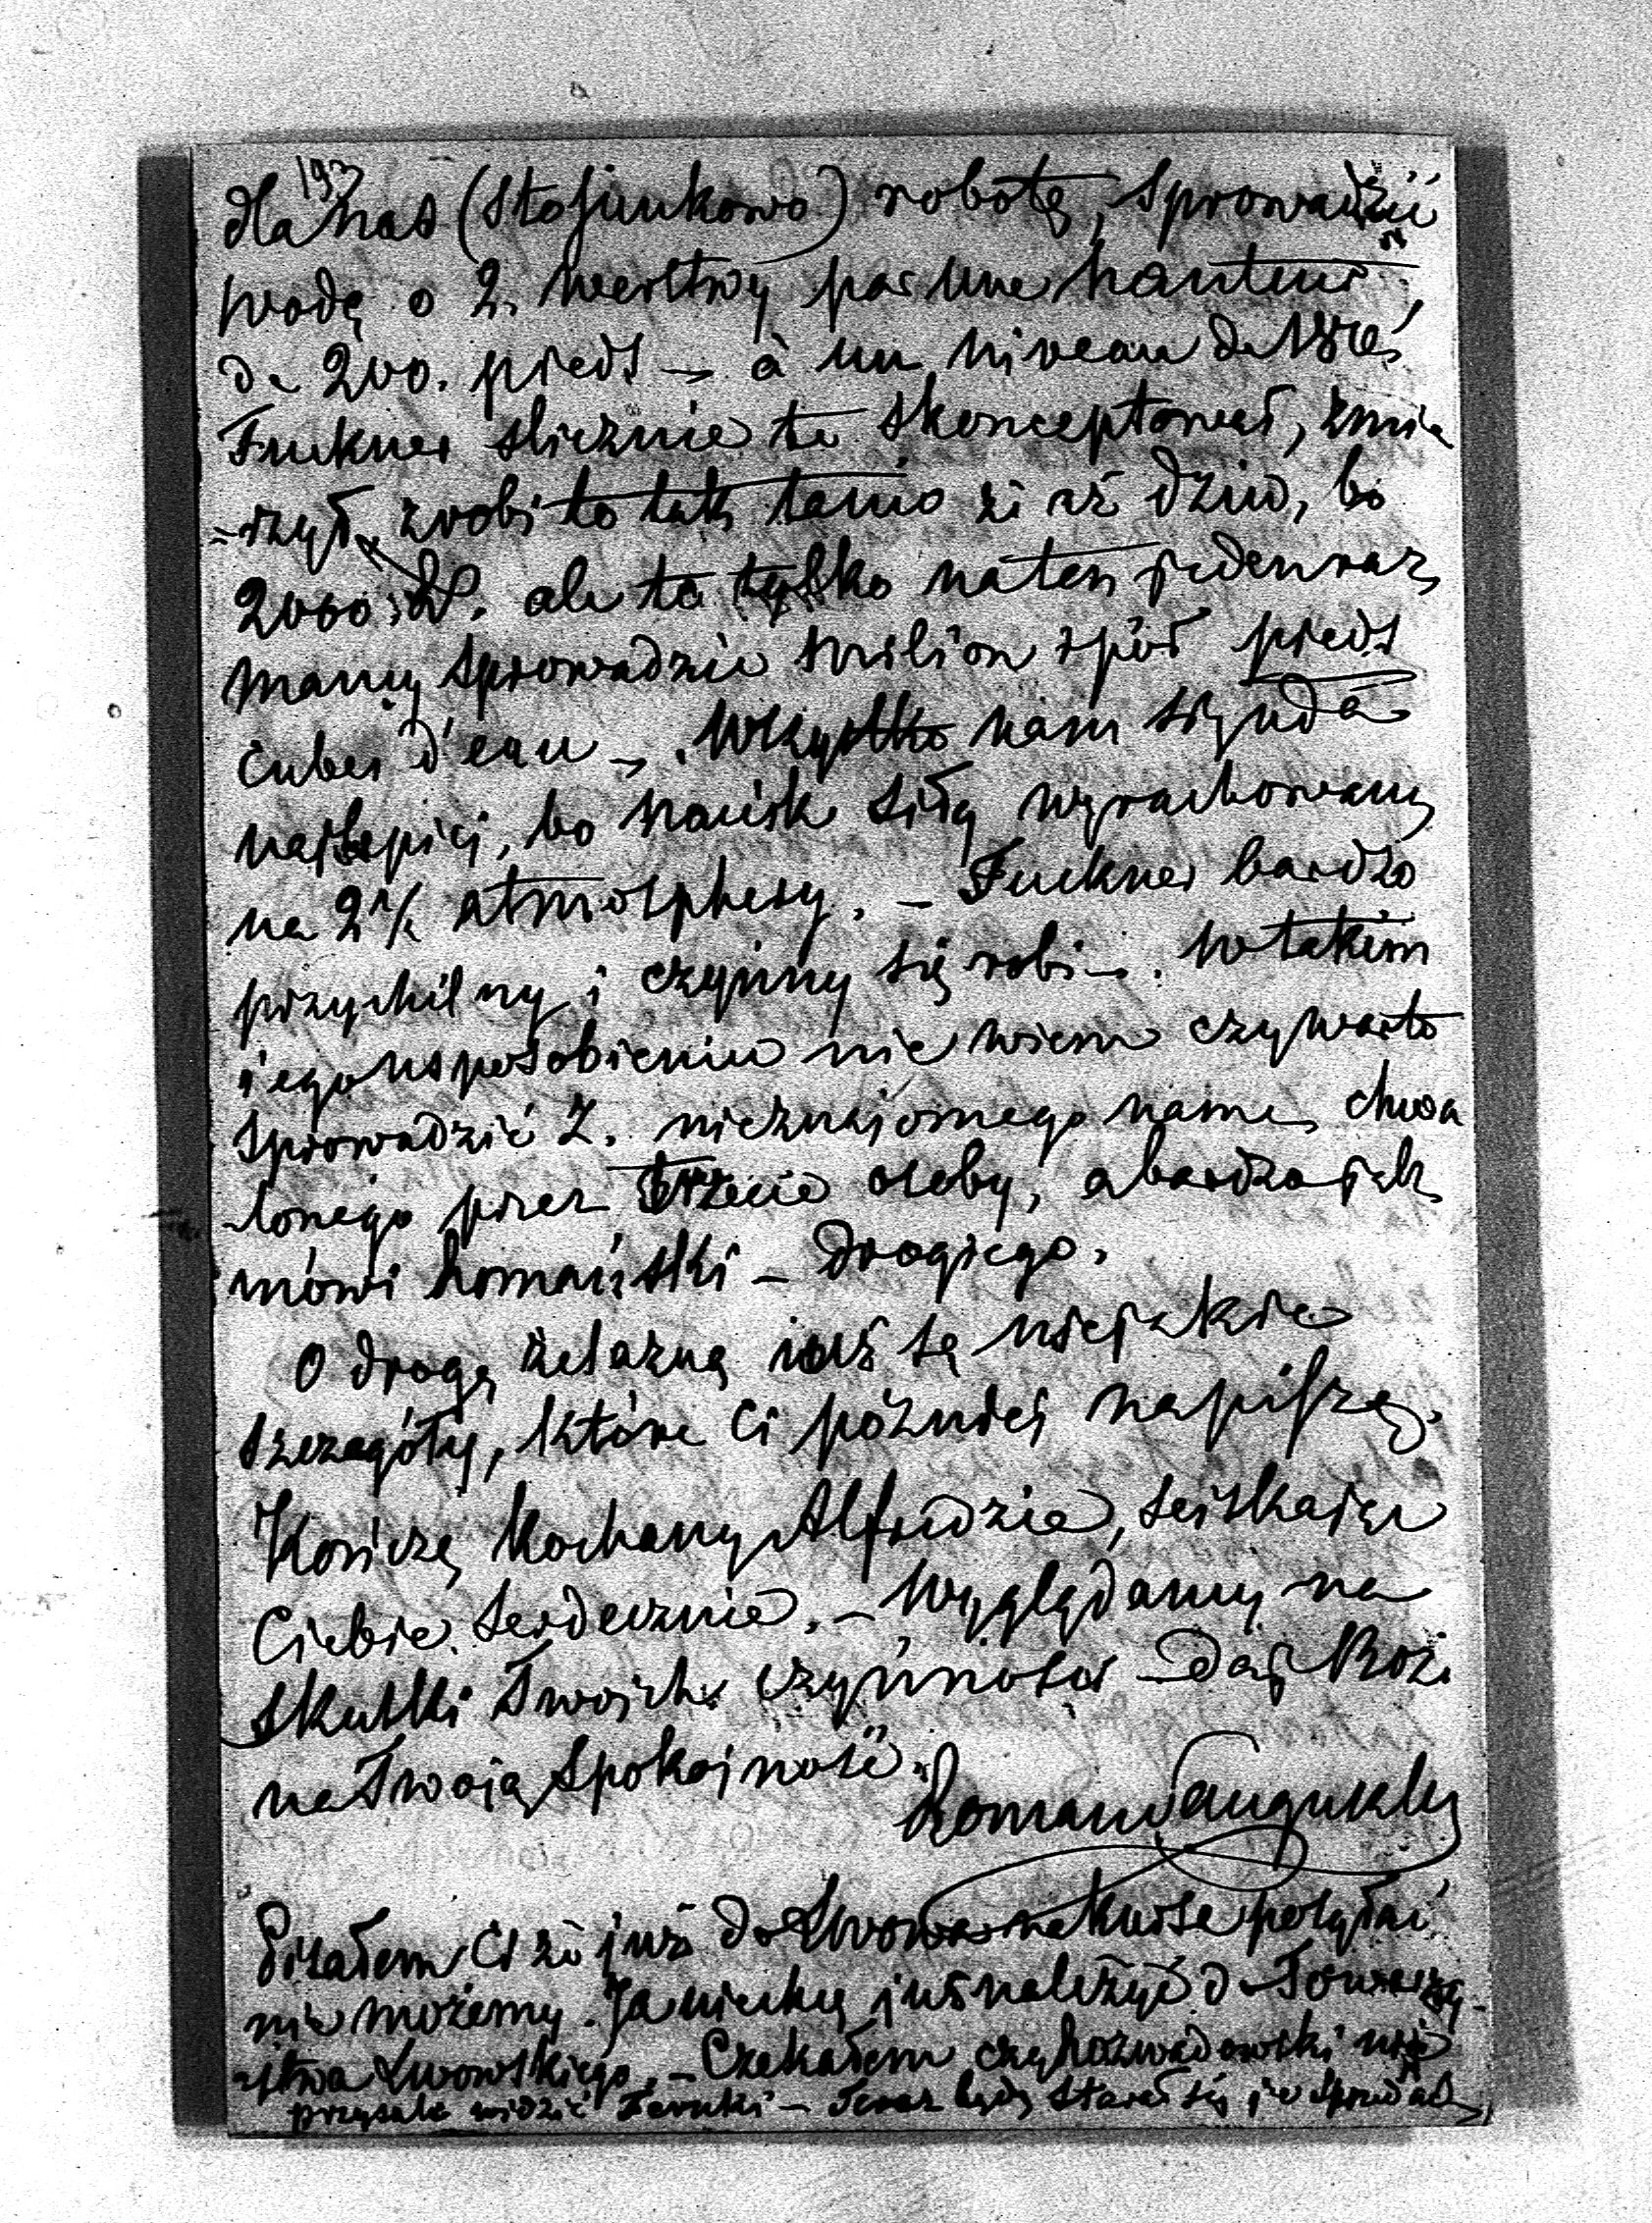 193
dla nas (stosunkowo) robotę, sprowadzić
wodę o 2. werstwy par une hauteur
de 200. pieds — à un niveau
Fuckner slicznie to skonceptował, zmia
-rzył, zrobi to tak tanio że aż dziw, bo
2000 ale to tylko na ten jeden raz,
mamy sprowadzić milion i pół pieds
cubes d'eau —. Wszystko nam się uda
najlepiej, bo nacisk siłę wyrachowany
na 2 1/2 atmosphery. — Fuckner bardzo
przychilny i czynny się robi —. W takim
jego usposobieniu nie wiem czy warto
sprowadzić Z. nieznajomego nam, chwa
-lonego przez trzecie osoby, a bardzo jak
mówi Romański — drogiego.
O drogę żelazną już są niejakie
szczegóły, które Ci pózniej napiszę.
Kończę kochany Alfredzie, sciskając
Ciebie serdecznie. — Wyglądamy na
skutki Twoich czynności — Daj Boże
na Twoją spokojność.
Roman Sanguszko
Pisałem Ci że już do Lwowa na kursa posyłać
nie możemy. Ja niechcę już należyć do Towarzy-
-stwa Lwowskiego. — Czekałem czy Rozwadowski nie
przyszle widzić — Teraz będę starał się je